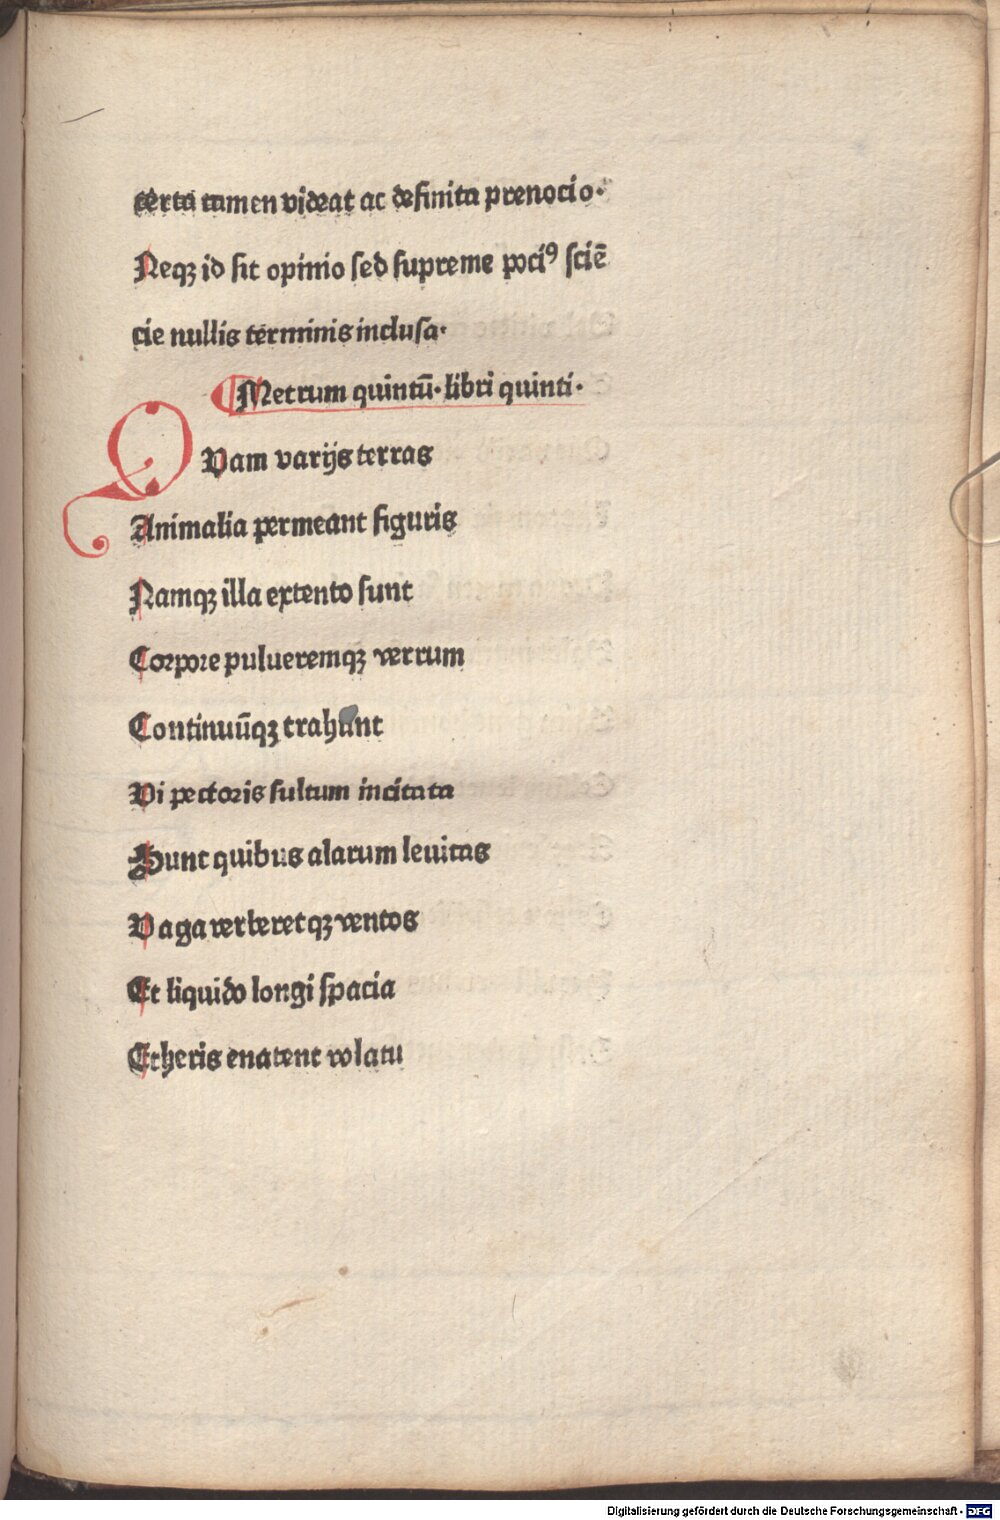 certa tamen videat ac definita prenocio·
Neqꝫ id sit opinio sed supreme pociꝰ sciē
cie nullis terminis inclusa·
Metrum quintū· libri quinti·
QVam varijs terras
Animalia permeant figuris
Namqꝫ illa extento sunt
Corpore pulueremqꝫ verrum
Continuūqꝫ trahunt
Vi pectoris sultum incitata
Sunt quibus alarum leuitas
Vaga verberetqꝫ ventos
Et liquido longi spacia
Etheris enatent volatu
Digitalisierung gefördert durch die Deutsche Forschungsgemeinschaft - DFG